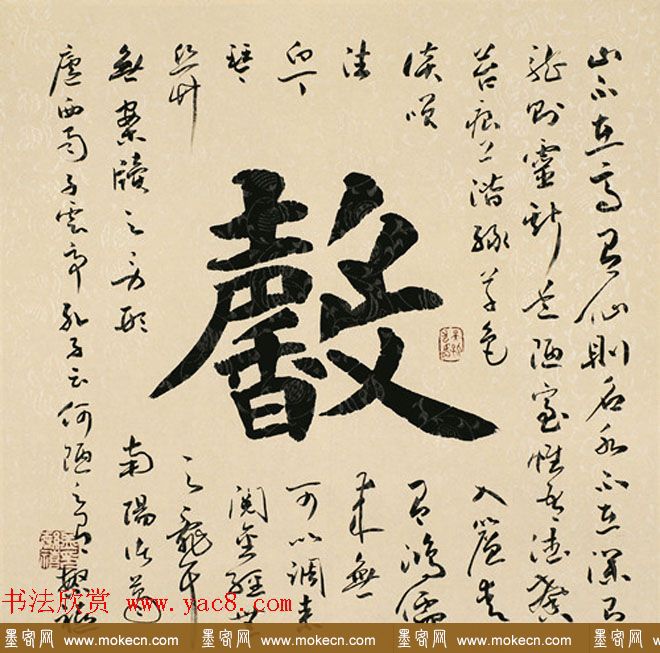 山不在高有仙則名水不在深有
龍則靈斯是陋室惟吾德馨
苔痕上階綠草色
入簾青
談笑
有鴻儒
往
来無
白丁
可以調素
琴
閱金經無
絲竹
之亂耳
無案牘之勞形
南陽諸葛
廬西蜀子雲亭孔子云何陋之有
馨
书法欣赏 www.yac8.com
墨客网 www.mokecn.com 墨客网 www.mokecn.com 墨客网 www.mokecn.com 墨客网